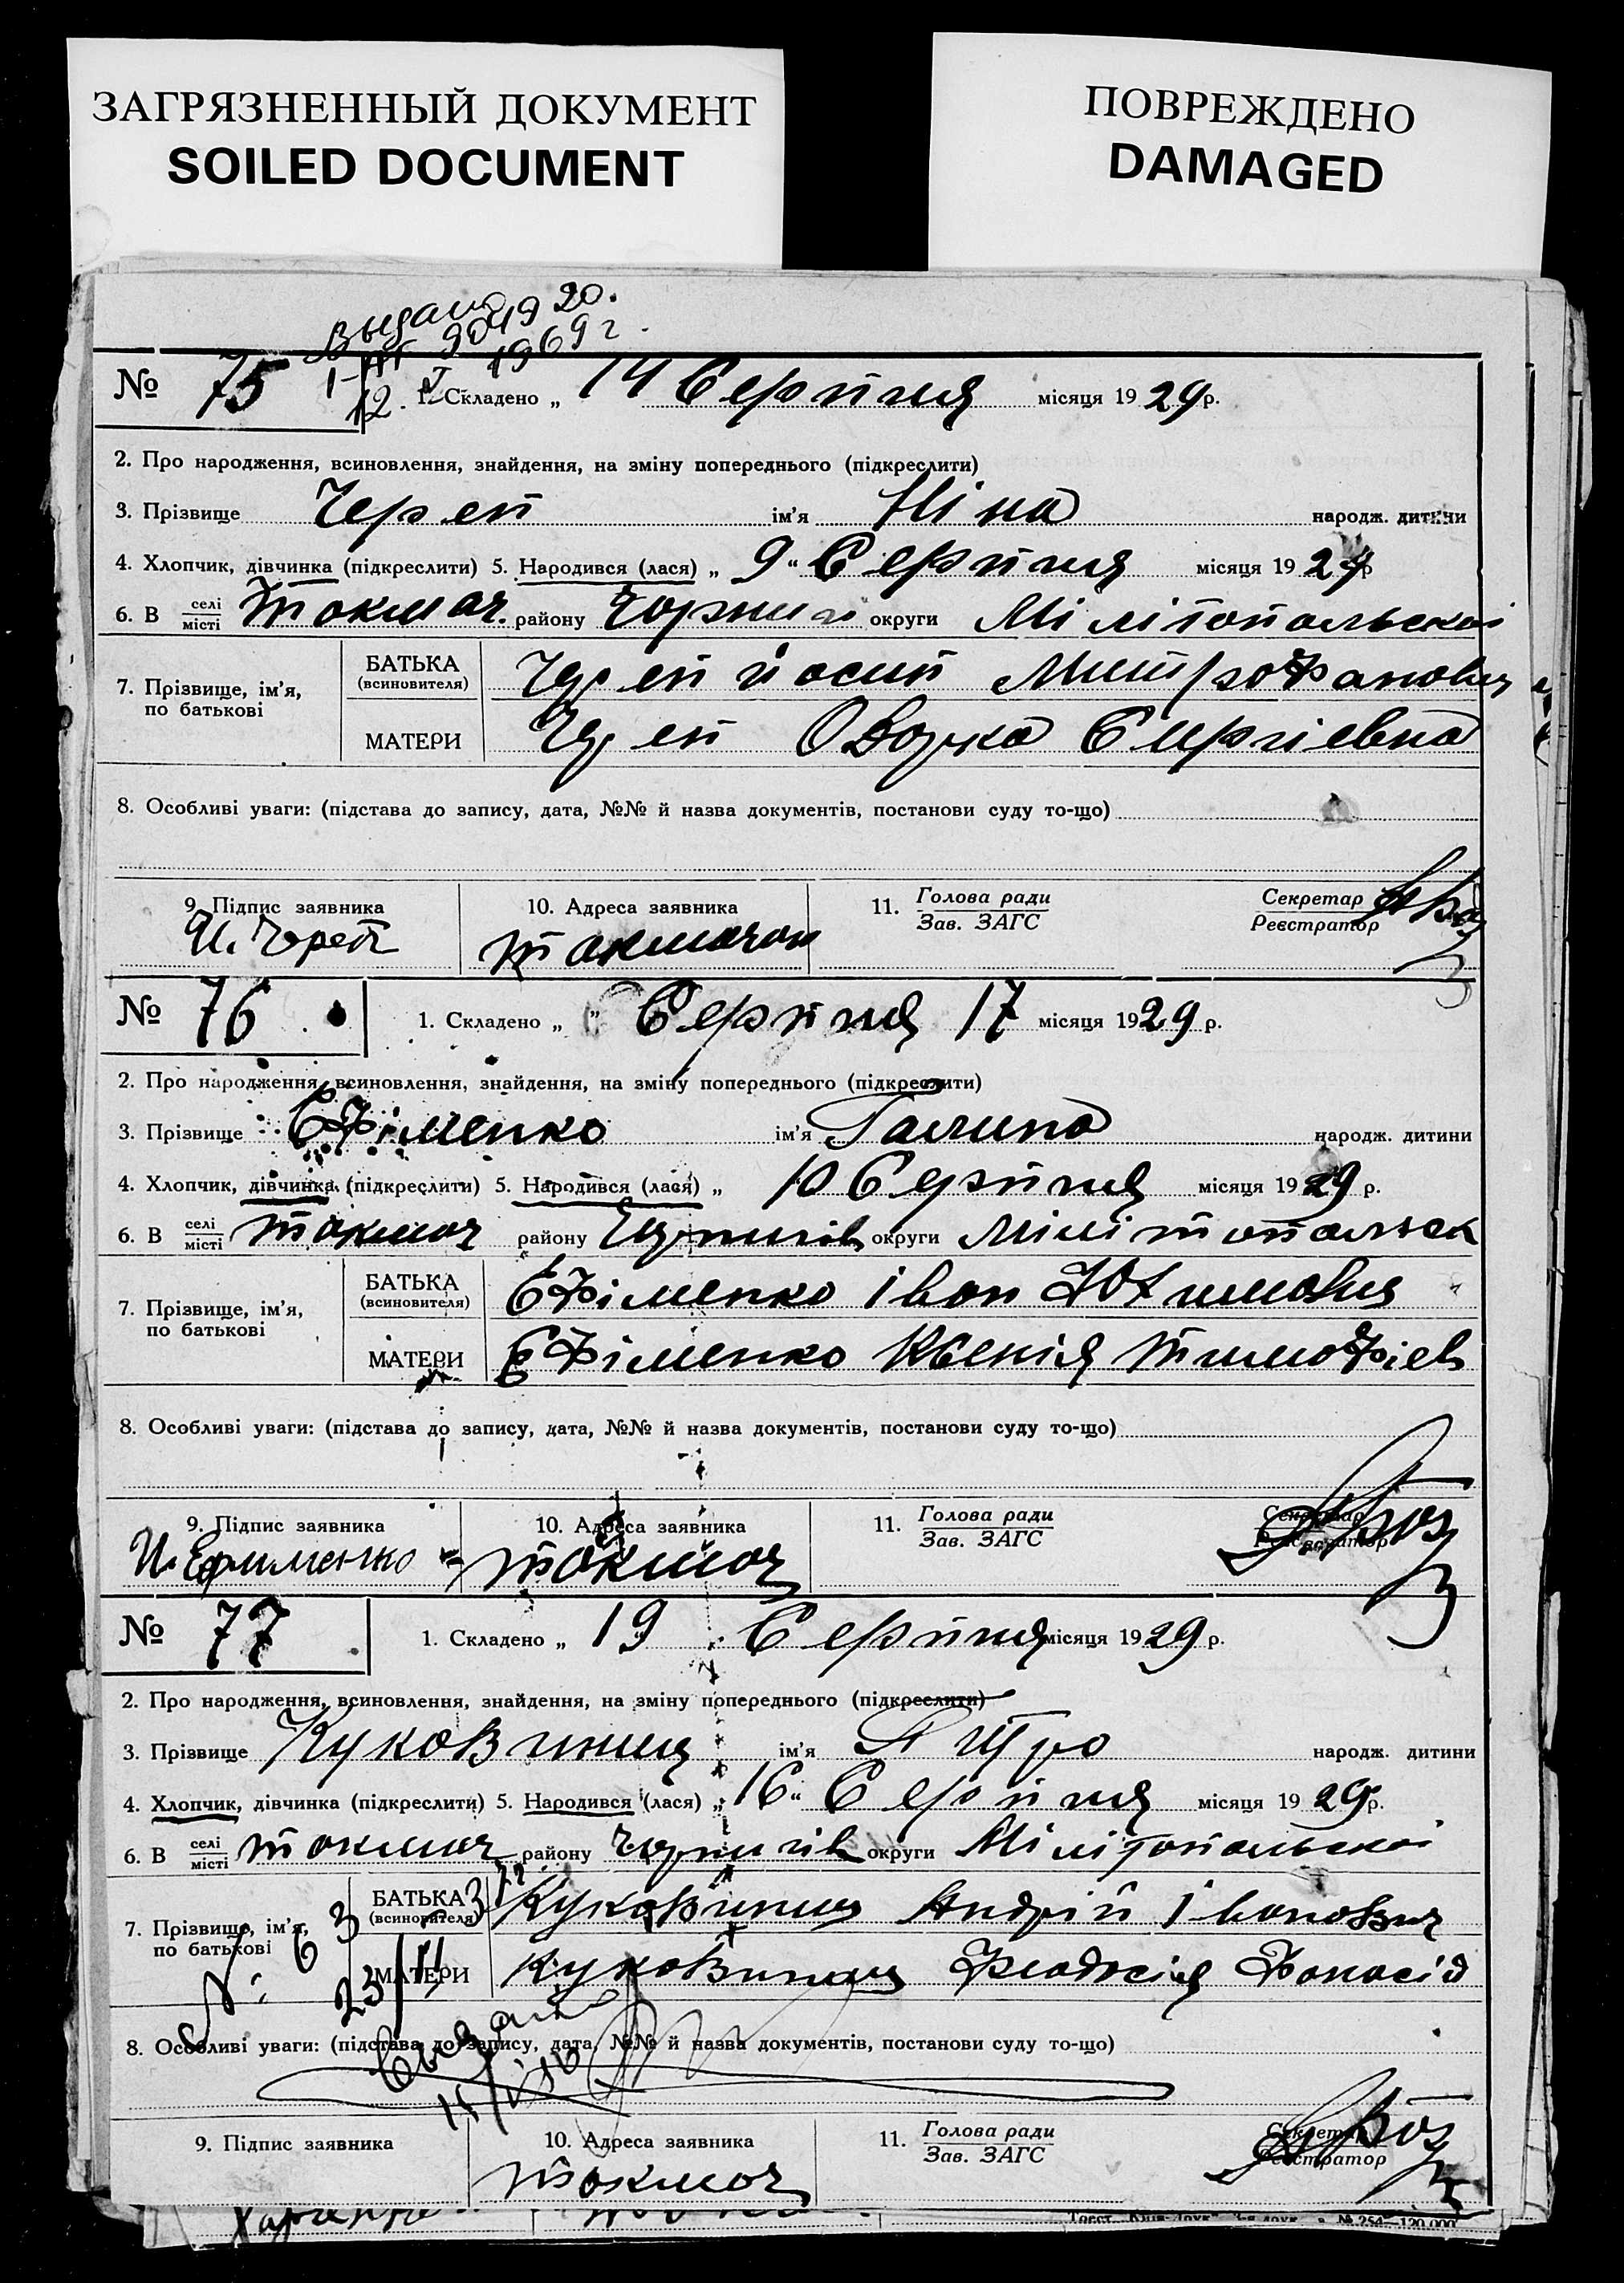 ЗАГРЯЗНЕННЫЙ ДОКУМЕНТ
SOILED DOCUMENT
ПОВРЕЖДЕНО
DAMAGED
1969 г.
№ 75 1. Складено „ 14 Серпня місяця 1929 р.
2. Про народження, всиновлення, знайдення, на зміну попереднього (підкреслити)
3. Прізвище Череп ім'я Ніна народж. дитини
4. Хлопчик, дівчинка (підкреслити) 5. Народився (лася) „ 9 “ Серпня місяця 1929 р
6. В селі місті Токмач. району округи Мілітопольскоі
7. Прізвище, ім'я, по батькові
БАТЬКА (всиновителя) Череп йосип Митрофанович
МАТЕРИ Череп Сиргіевна
8. Особливі уваги: (підстава до запису, дата, №№ й назва документів, постанови суду то-що)
9. Підпис заявника 10. Адреса заявника 11. Голова ради Зав. ЗАГС Секретар Реєстратор
И. Череп
№ 76 1. Складено „ “ Серпня 17 місяця 1929 р.
2. Про народження, всиновлення, знайдення, на зміну попереднього (підкреслити)
3. Прізвище Єфіменко ім'я Галина народж. дитини
4. Хлопчик, дівчинка (підкреслити) 5. Народився (лася) „ 10 Серпня місяця 1929 р.
6. В селі місті Токмач району Чернигів округи Мілітопольск
7. Прізвище, ім'я, по батькові
БАТЬКА (всиновителя) Єфіменко Іван
МАТЕРИ Єфіменко Ксенія Тимофіев
8. Особливі уваги: (підстава до запису, дата, №№ й назва документів, постанови суду то-що)
9. Підпис заявника 10. Адреса заявника 11. Голова ради Зав. ЗАГС Секретар Реєстратор
И. Ефименко Токмач
№ 77 1. Складено „ 19 Серпня місяця 1929 р.
2. Про народження, всиновлення, знайдення, на зміну попереднього (підкреслити)
3. Прізвище ім'я Пітро народж. дитини
4. Хлопчик, дівчинка (підкреслити) 5. Народився (лася) „ 16 “ Серпня місяця 1929 р.
6. В селі місті Токмач району Чернигів округи Мілітопольскоі
7. Прізвище, ім'я, по батькові
БАТЬКА (всиновителя) Андрій Івановіч
МАТЕРИ
8. Особливі уваги: (підстава до запису, дата, №№ й назва документів, постанови суду то-що)
9. Підпис заявника 10. Адреса заявника 11. Голова ради Зав. ЗАГС Секретар Реєстратор
Токмач